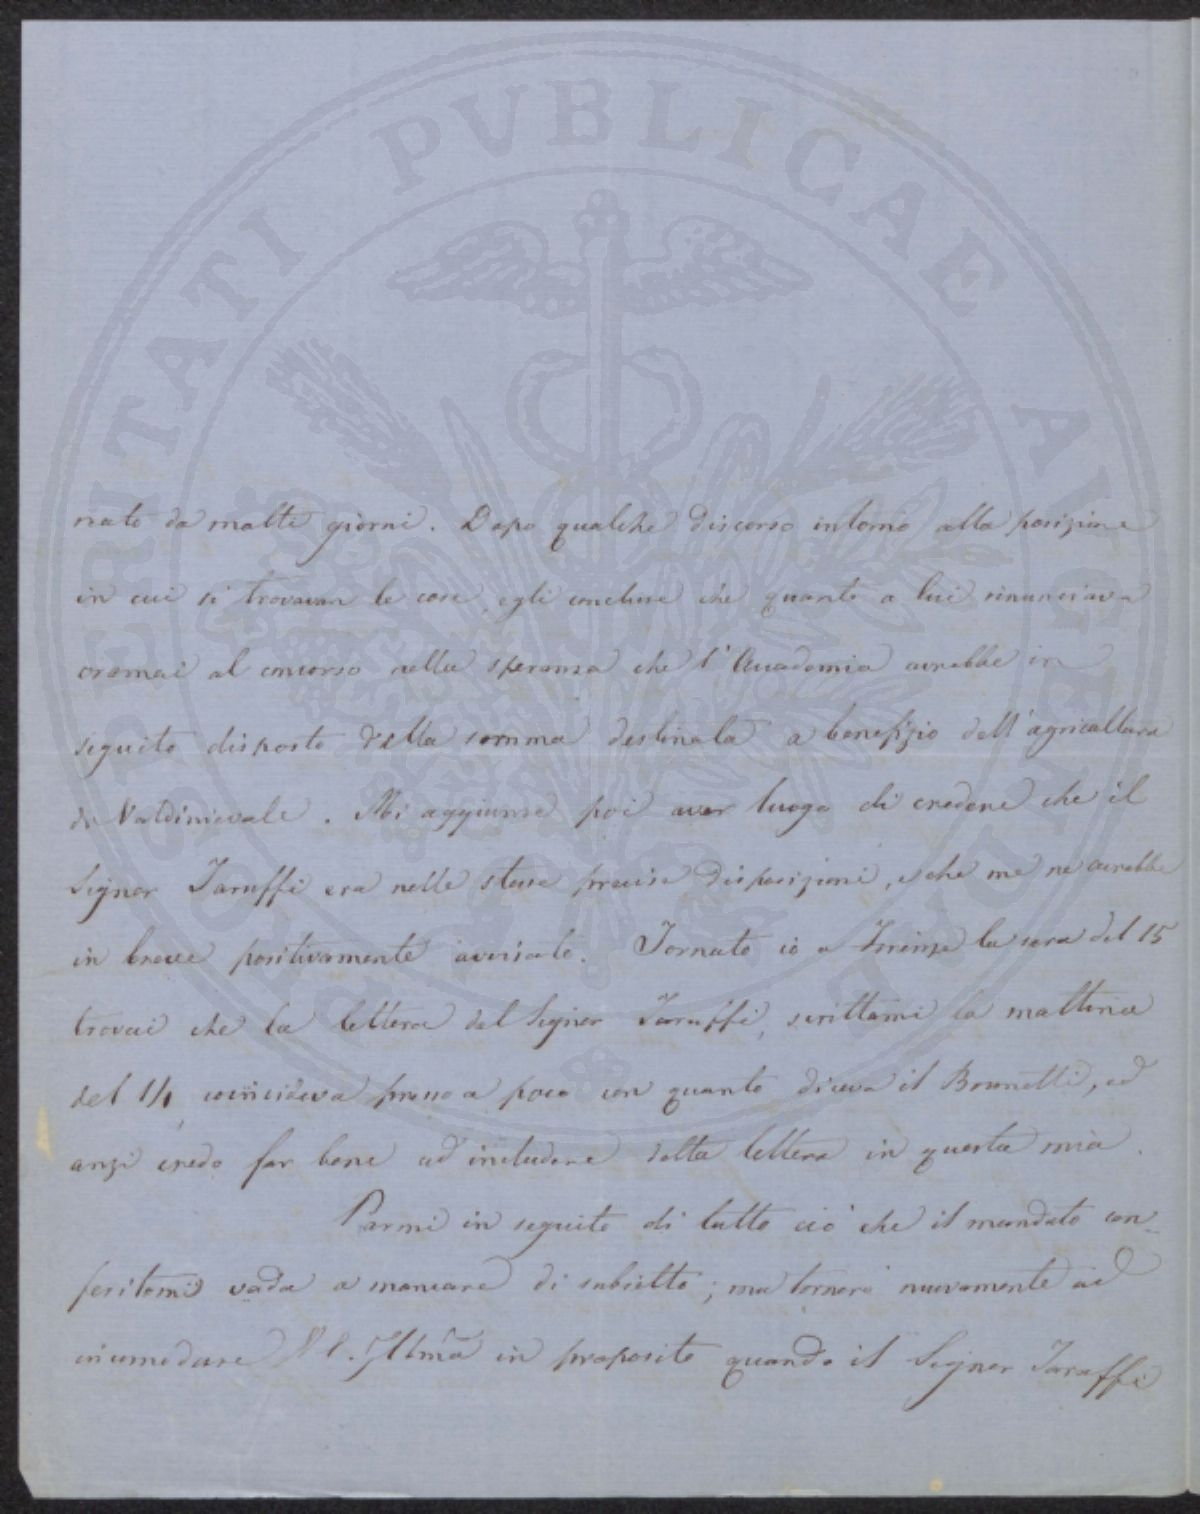 PROSPERITATI PVBLICAE AVGENDAE
nato da molti giorni. Dopo qualche discorso intorno alla posizione
in cui si trovavan le cose, egli concluse che quanto a lui rinunciava
oramai al concorso nella speranza che l'Accademia avrebbe in
seguito disposto della somma destinata a benefizio dell'agricoltura
di Valdinievole. Mi aggiunse poi aver luogo di credere che il
Signor Taruffi era nelle stesse precise disposizioni, e che me ne avrebbe
in breve positivamente avvisato. Tornato io a Firenze la sera del 15
trovai che la lettera del Signor Taruffi, scrittami la mattina
del 14, coincideva presso a poco con quanto diceva il Brunetti, ed
anzi credo far bene ad includere detta lettera in questa mia.
Parmi in seguito di tutto ciò che il mandato con-
feritomi vada a mancare di subietto; ma tornerò nuovamente ad
incomodare V. S. Illma in proposito quando il Signor Taruffi